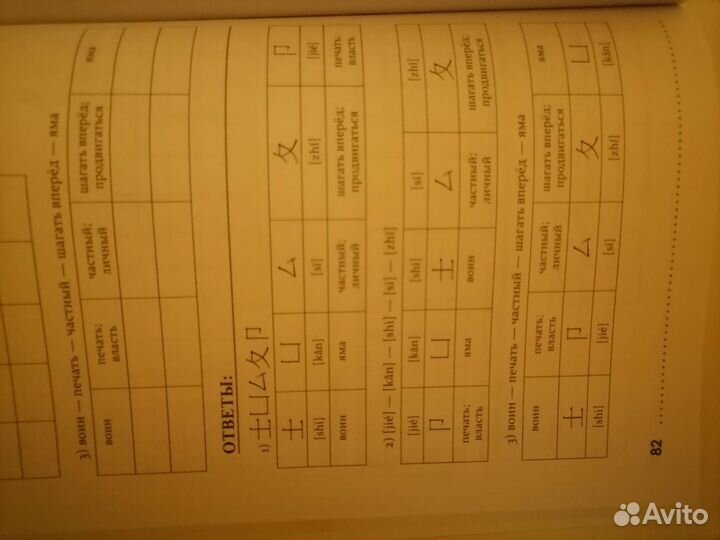 3) воин — печать — частный — шагать вперёд — яма
воин печать; власть частный; личный шагать вперёд; продвигаться яма
ОТВЕТЫ:
1) 士凵厶夂卩
士 凵 厶 夂 卩
[shì] [kǎn] [sī] [zhǐ] [jié]
воин яма частный; личный шагать вперёд; продвигаться печать; власть
2) [jié] — [kǎn] — [shì] — [sī] — [zhǐ]
[jié] [kǎn] [shì] [sī] [zhǐ]
卩 凵 士 厶 夂
печать; власть яма воин частный; личный шагать вперёд; продвигаться
3) воин — печать — частный — шагать вперёд — яма
воин печать; власть частный; личный шагать вперёд; продвигаться яма
士 卩 厶 夂 凵
[shì] [jié] [sī] [zhǐ] [kǎn]
82
Avito